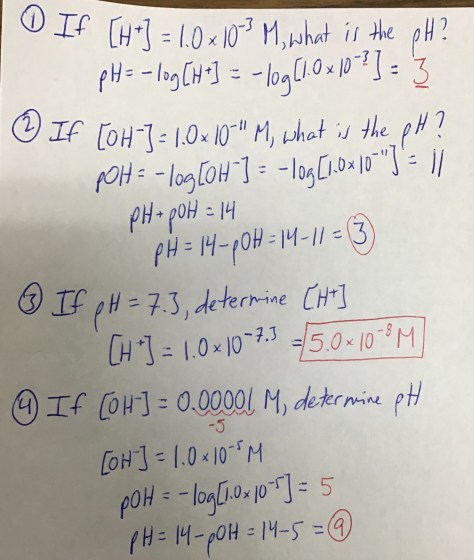 ① If [H⁺] = 1.0 × 10⁻³ M, what is the pH?
pH = -log[H⁺] = -log[1.0 × 10⁻³] = 3
② If [OH⁻] = 1.0 × 10⁻¹¹ M, what is the pH?
pOH = -log[OH⁻] = -log[1.0 × 10⁻¹¹] = 11
pH + pOH = 14
pH = 14 - pOH = 14 - 11 = 3
③ If pH = 7.3, determine [H⁺]
[H⁺] = 1.0 × 10⁻⁷·³ = 5.0 × 10⁻⁸ M
④ If [OH⁻] = 0.00001 M, determine pH
-5
[OH⁻] = 1.0 × 10⁻⁵ M
pOH = -log[1.0 × 10⁻⁵] = 5
pH = 14 - pOH = 14 - 5 = 9